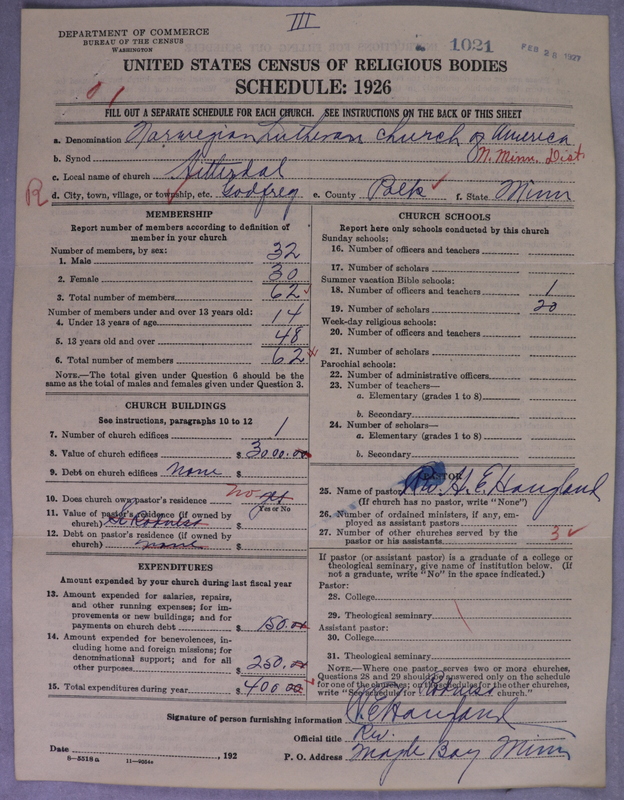 III
DEPARTMENT OF COMMERCE
BUREAU OF THE CENSUS
WASHINGTON
1021
FEB 28 1927
UNITED STATES CENSUS OF RELIGIOUS BODIES
SCHEDULE: 1926
FILL OUT A SEPARATE SCHEDULE FOR EACH CHURCH. SEE INSTRUCTIONS ON THE BACK OF THIS SHEET
a. Denomination Norwegian Lutheran Church of America
b. Synod N. Minn. Dist.
c. Local name of church Hitterdal
R
d. City, town, village, or township, etc. Godfrey e. County Polk f. State Minn
MEMBERSHIP
Report number of members according to definition of
member in your church
Number of members, by sex:
1. Male 32
2. Female 30
3. Total number of members 62
Number of members under and over 13 years old:
4. Under 13 years of age 14
5. 13 years old and over 48
6. Total number of members 62
NOTE.—The total given under Question 6 should be the
same as the total of males and females given under Question 3.
CHURCH BUILDINGS
See instructions, paragraphs 10 to 12
7. Number of church edifices 1
8. Value of church edifices $ 3000.00
9. Debt on church edifices None $
10. Does church own pastor's residence no
Yes or No
11. Value of pastor's residence (if owned by
church) $
12. Debt on pastor's residence (if owned by
church) none $
EXPENDITURES
Amount expended by your church during last fiscal year
13. Amount expended for salaries, repairs,
and other running expenses; for im-
provements or new buildings; and for
payments on church debt $ 150.00
14. Amount expended for benevolences, in-
cluding home and foreign missions; for
denominational support; and for all
other purposes $ 250.00
15. Total expenditures during year $ 400.00
CHURCH SCHOOLS
Report here only schools conducted by this church
Sunday schools:
16. Number of officers and teachers
17. Number of scholars
Summer vacation Bible schools:
18. Number of officers and teachers 1
19. Number of scholars 20
Week-day religious schools:
20. Number of officers and teachers
21. Number of scholars
Parochial schools:
22. Number of administrative officers
23. Number of teachers—
a. Elementary (grades 1 to 8)
b. Secondary
24. Number of scholars—
a. Elementary (grades 1 to 8)
b. Secondary
PASTOR
25. Name of pastor Rev. H. E. Haugland
(If church has no pastor, write "None")
26. Number of ordained ministers, if any, em-
ployed as assistant pastors
27. Number of other churches served by the
pastor or his assistants 3
If pastor (or assistant pastor) is a graduate of a college or
theological seminary, give name of institution below. (If
not a graduate, write "No" in the space indicated.)
Pastor:
28. College
29. Theological seminary
Assistant pastor:
30. College
31. Theological seminary
NOTE.—Where one pastor serves two or more churches,
Questions 28 and 29 should be answered only on the schedule
for one of the churches; on the schedules for the other churches,
write "See schedule for church."
Signature of person furnishing information H. E. Haugland
Official title Rev.
Date , 192 P. O. Address Maple Bay Minn
8—5518a 11—9554